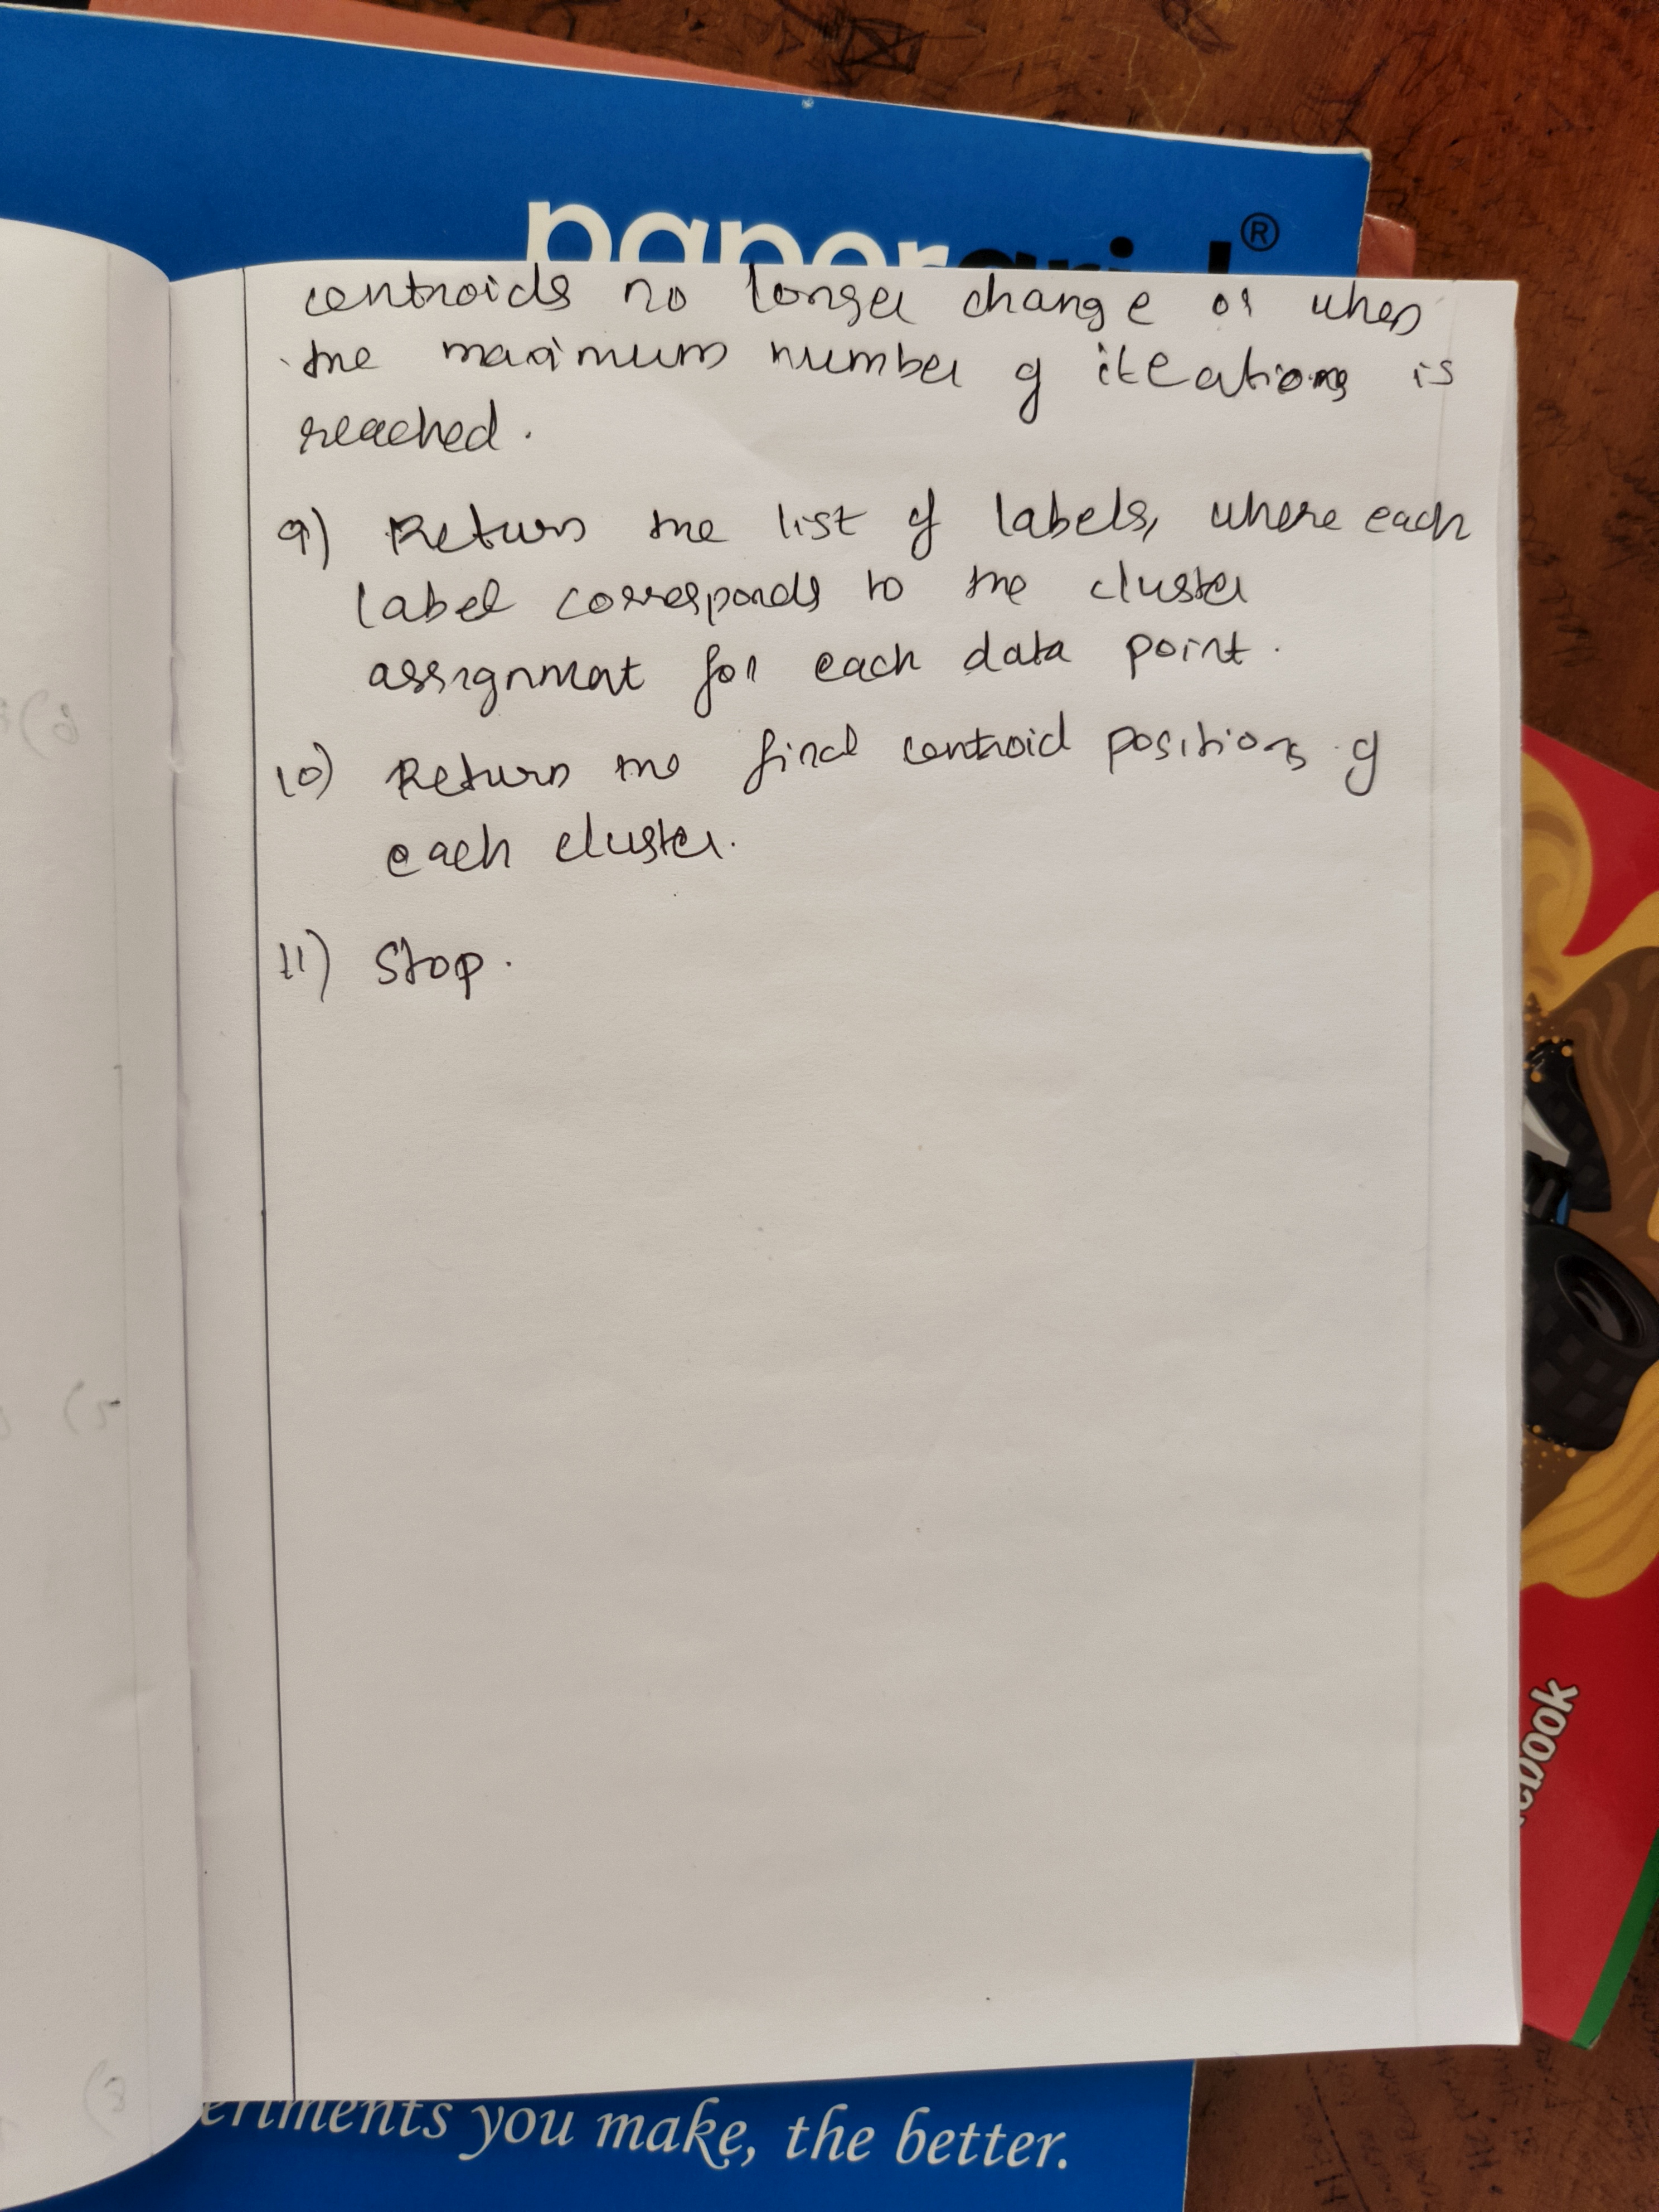 papergrid®
centroids no longer change or when
the maximum number of iterations is
reached.
9) Return the list of labels, where each
label corresponds to the cluster
assignment for each data point.
10) Return the final centroid positions of
each cluster.
11) Stop.
you make, the better.